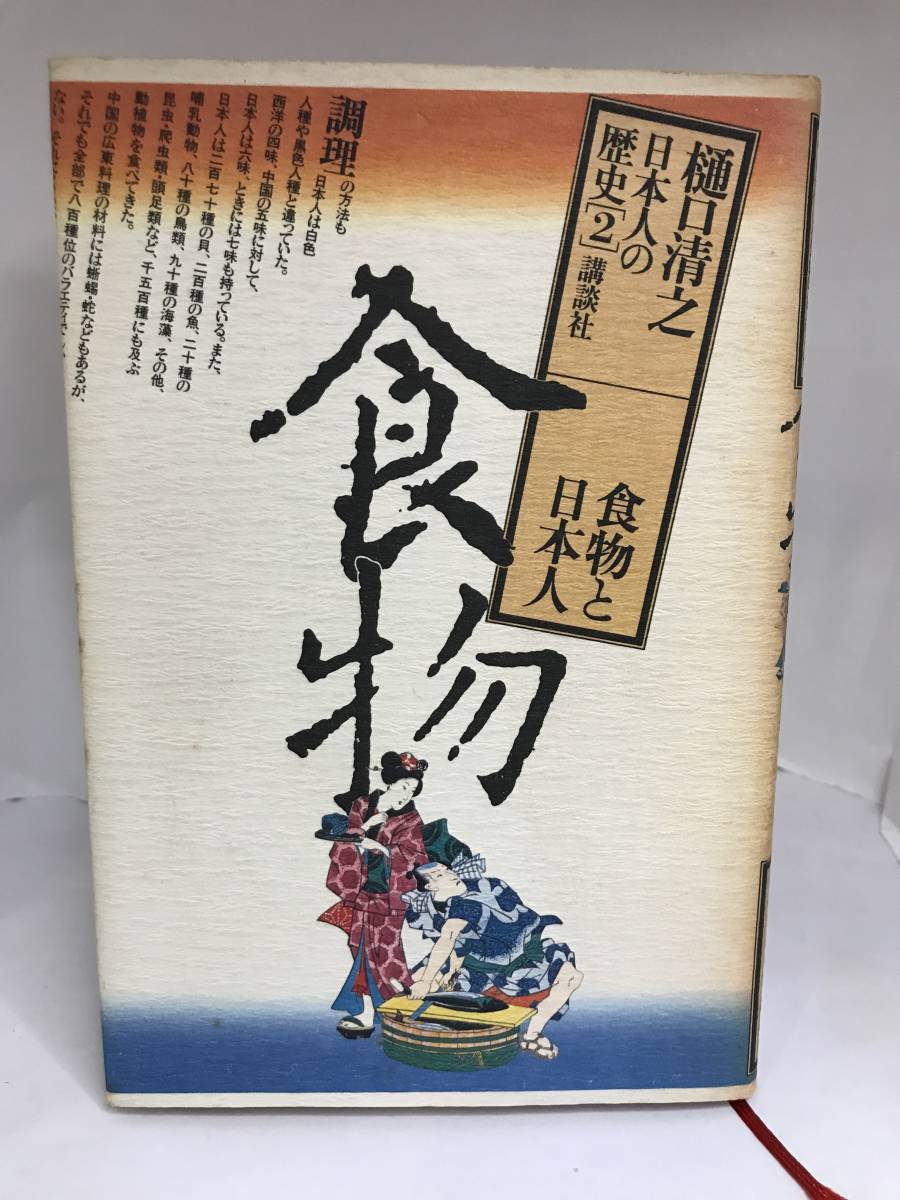 樋口清之
日本人の
歴史[2]
講談社
食物と
日本人
食物
調理の方法も
日本人は白色
人種や黒色人種と違っていた。
西洋の四味、中国の五味に対して、
日本人は六味、ときには七味も持っている。また、
日本人は二百七十種の貝、二百種の魚、二十種の
哺乳動物、八十種の鳥類、九十種の海藻、その他、
昆虫・爬虫類・頭足類など、千五百種にも及ぶ
動植物を食べてきた。
中国の広東料理の材料には蜥蜴・蛇などもあるが、
それでも全部で八百種位のバラエティでしか
ない。それ